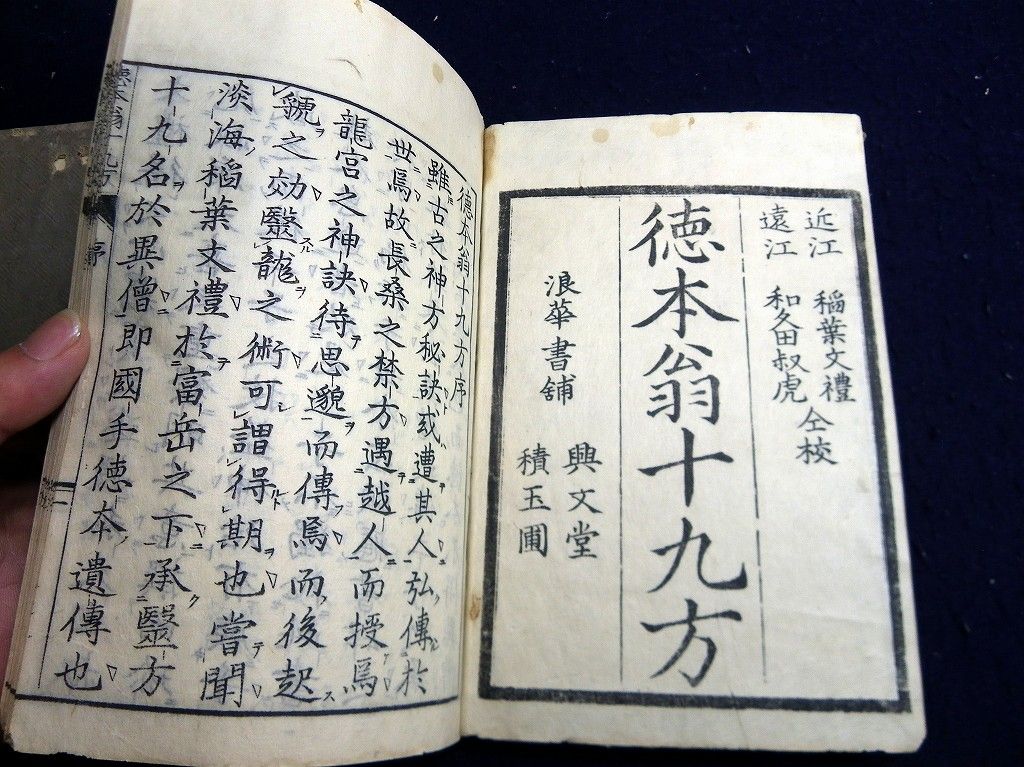 近江 稲葉文禮
遠江 和久田叔虎
仝校
徳本翁十九方
浪華書舗
興文堂
積玉圃
徳本翁十九方序
雖古之神方秘訣或遭其人弘傳於
世焉故長桑之禁方遇越人而授焉
龍宮之神訣待思邈而傳焉而後起
虢之効醫龍之術可謂得期也嘗聞
淡海稻葉文禮於富岳之下承醫方
十九名於異僧即國手徳本遺傳也
徳本翁十九方 序